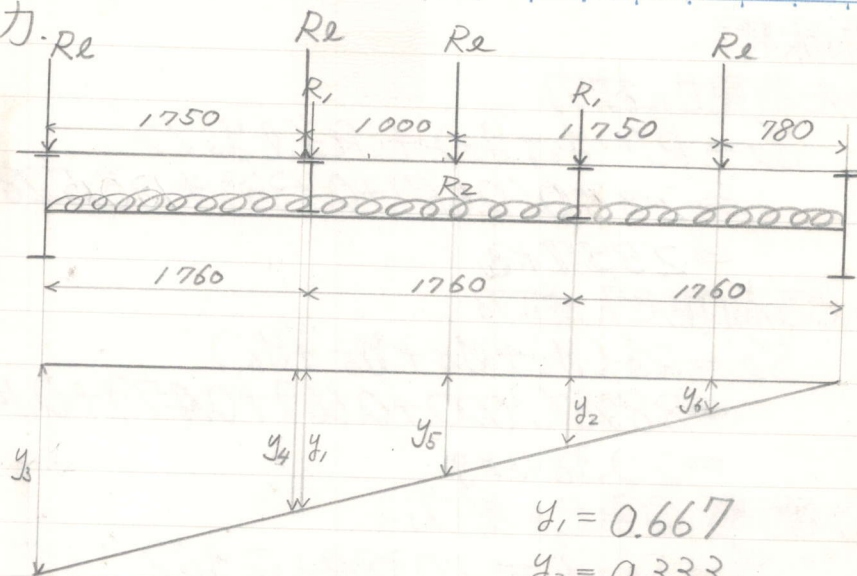 力.
Rl Rl Rl Rl
R₁ R₁
1750 1000 1750 780
R₂
1760 1760 1760
y₃ y₄ y₁ y₅ y₂ y₆
y₁ = 0.667